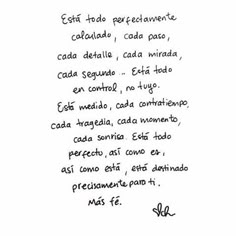 Está todo perfectamente
calculado, cada paso,
cada detalle, cada mirada,
cada segundo... Está todo
en control, no tuyo.
Está medido, cada contratiempo,
cada tragedia, cada momento,
cada sonrisa. Está todo
perfecto, así como es,
así como está, está destinado
precisamente para ti.
Más fé.